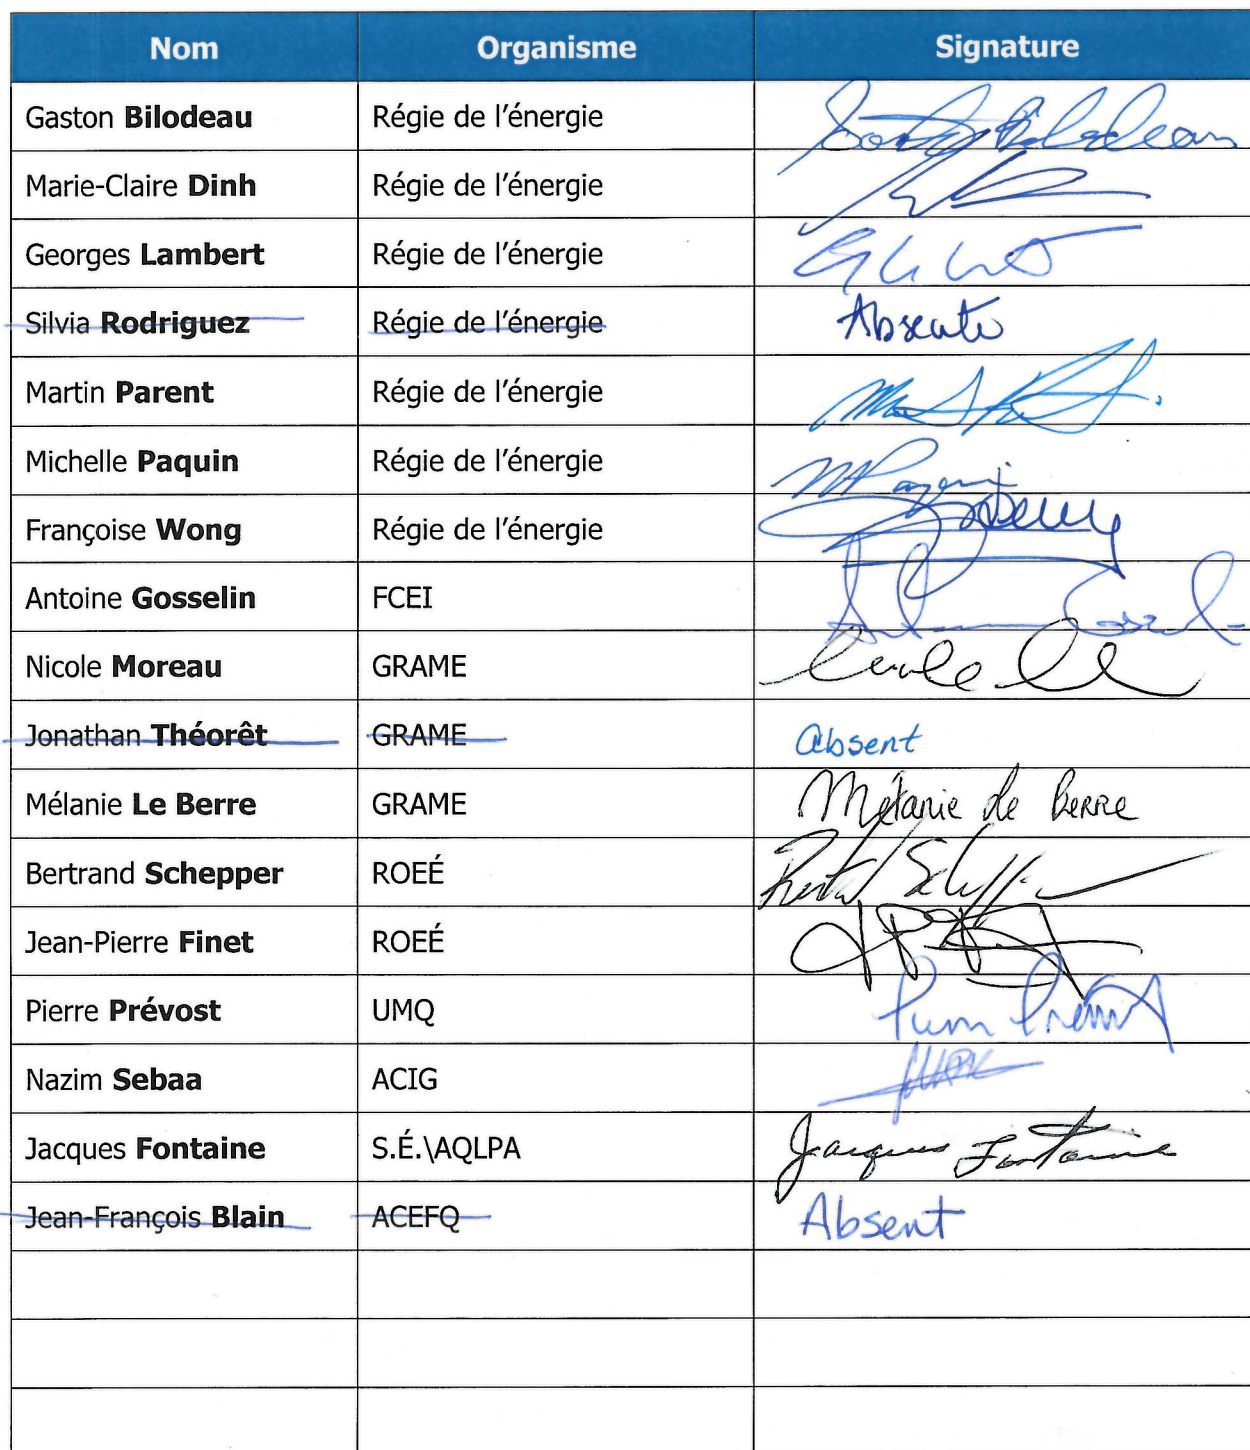 Nom Organisme Signature
Gaston Bilodeau Régie de l'énergie Gaston Bilodeau
Marie-Claire Dinh Régie de l'énergie
Georges Lambert Régie de l'énergie
Silvia Rodriguez Régie de l'énergie Absente
Martin Parent Régie de l'énergie
Michelle Paquin Régie de l'énergie MPaquin
Françoise Wong Régie de l'énergie
Antoine Gosselin FCEI
Nicole Moreau GRAME Nicole
Jonathan Théorêt GRAME absent
Mélanie Le Berre GRAME Mélanie Le Berre
Bertrand Schepper ROEÉ
Jean-Pierre Finet ROEÉ
Pierre Prévost UMQ Pierre Prévost
Nazim Sebaa ACIG
Jacques Fontaine S.É.\AQLPA Jacques Fontaine
Jean-François Blain ACEFQ Absent